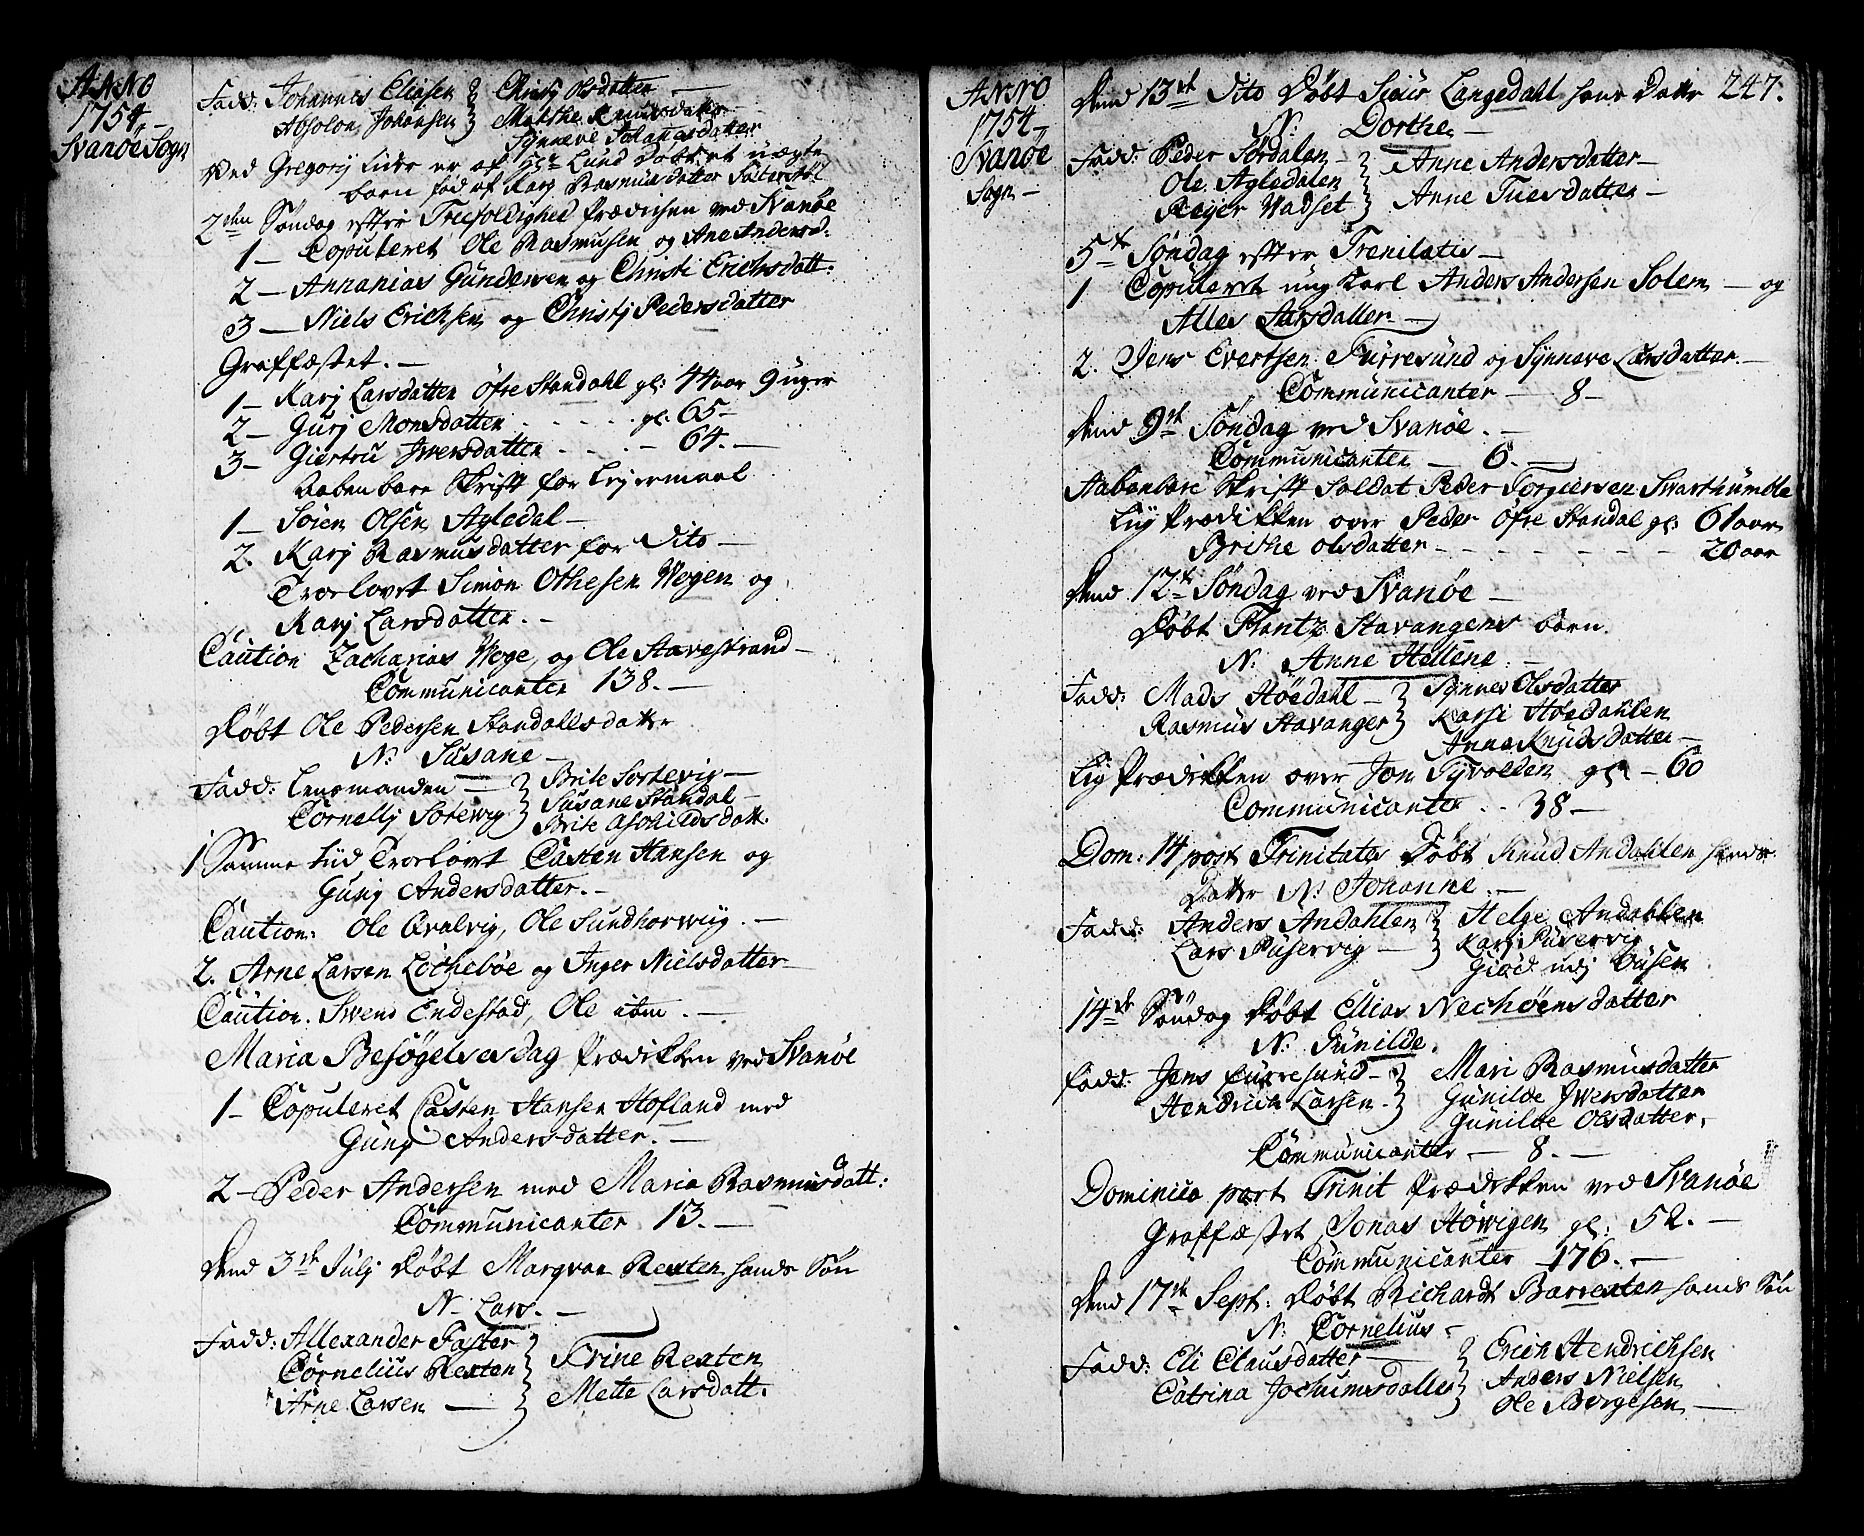 ANNO
1754.
Svanöe Sogn
Fadd: Johannes Eliasen } Christj Olsdatter —
Absolon Johansen } Marthe Knudsdatter
Synneve Johanesdatter
Ved Gregorij Fider er af Hr Lund döbt et uægte
barn fød af Karj Rasmusdatter
2den Søndag efter Trefoldighed Prædicken ved Svanöe
1 — Copuleret Ole Rasmusen og Ane Andersd.
2 — Annanias Gundersen og Christi Erichsdatt:
3 — Niels Erichsen og Christj Pedersdatter
Graffæstet. —
1 — Karj Larsdatter Öfre Standahl gl: 44 aar 9 uger
2 — Gurj Monsdatter - - - - gl: 65 —
3 — Giertru Iwersdatter - - - - 64. —
Aabenbare Skrift for Leyermaal
1 — Soien Olsen Agledal —
2. Karj Rasmusdatter for Dito —
Troelovet Simon Othesen Wogen og
Karj Larsdatter. —
Caution Zacharias Woge, og Ole Stavestrand —
Communicanter 138. —
Döbt Ole Pedersen Standalls datter
N: Susane —
Fadd: Lensmanden — } Brite Sortevig —
Cornellj Sortewig } Susane Standal —
Brite Aschildsdatt.
1 Samme tiid Troelovet Casten Hansen og
Gunj Andersdatter. —
Caution: Ole Qvalvig, Ole Sundhorwiig. —
2. Arne Larsen Löchebøe og Inger Nielsdatter —
Caution. Swend Endestad, Ole item. —
Maria Besøgelses dag Prædikken ved Svanöe
1 — Copuleret Casten Hansen Hofland med
Gunj Andersdatter. —
2 — Peder Andersen med Maria Rasmusdatt:
Communicanter 13. —
Dend 3de Julj Döbt Margvar Rexten hands Sön
N. Lars. —
Fadd: Allexander Faster } Trine Rexten
Cornelius Rexten } Mette Larsdatt.
Arne Larsen — }
ANNO
1754
Svanöe
Sogn —
247.
Dend 13de Dito Döbt Siur Langedahl hans Datter
N: Dorthe —
Fadd: Peder Sördalen — } Anne Andersdatter —
Ole Agledalen } Anne Tuesdatter —
Reger Vadset }
5te Søndag efter Trenitatis —
1 Copuleret ung Karl Anders Andersen Solem — og
Alles Larsdatter —
2. Jens Evertsen Furresund og Synneve Larsdatter —
Communicanter — 8 —
Dend 9de Søndag ved Svanöe. —
Communicanter — 6. —
Aabenbare Skrift Soldat Peder Torgiersen Swarthumble
Liig Prædikken over Peder Öfre Standal gl: 61 aar
Brithe Olsdatter - - - - - - 20 aar
Dend 12te Søndag ved Svanöe —
Döbt Frantz Stavangers barn.
N: Anne Hellene. —
Fadd: Mads Höedahl — } Synnev Olsdatter
Rasmus Stavanger } Karsi Höedahlen
Anna Knudsdatter —
Liig Prædikken over Jon Tyvolden gl: — 60
Communicanter - - 38 —
Dom: 14 post Trinitates Döbt Knud Andahlen hands
Datter N: Johanne. —
Fadd: Anders Andahlen } Helge Andahlen
Lars Puservig — } Karj Puservig
Giöd mij Busen
14de Søndag Döbt Ellias Nechöens datter
N: Gunilde.
Fadd: Jens Furresund — } Mari Rasmusdatter
Hendrich Larsen. } Gunilde Iwersdatter
Gunilde Olsdatter.
Communicanter — 8. —
Dominica post Trinit Prædikken ved Svanöe
Graffæstet Jonas Höwigen gl: 52. —
Communicanter — 176. —
Dend 17de Sept: Döbt Richardt Barrexten hans Sön
N: Cornelius —
Fadd: Eli Clausdatter — } Erich Hendrichsen
Catrina Jochumsdatter } Anders Nielsen
Ole Borgesen —